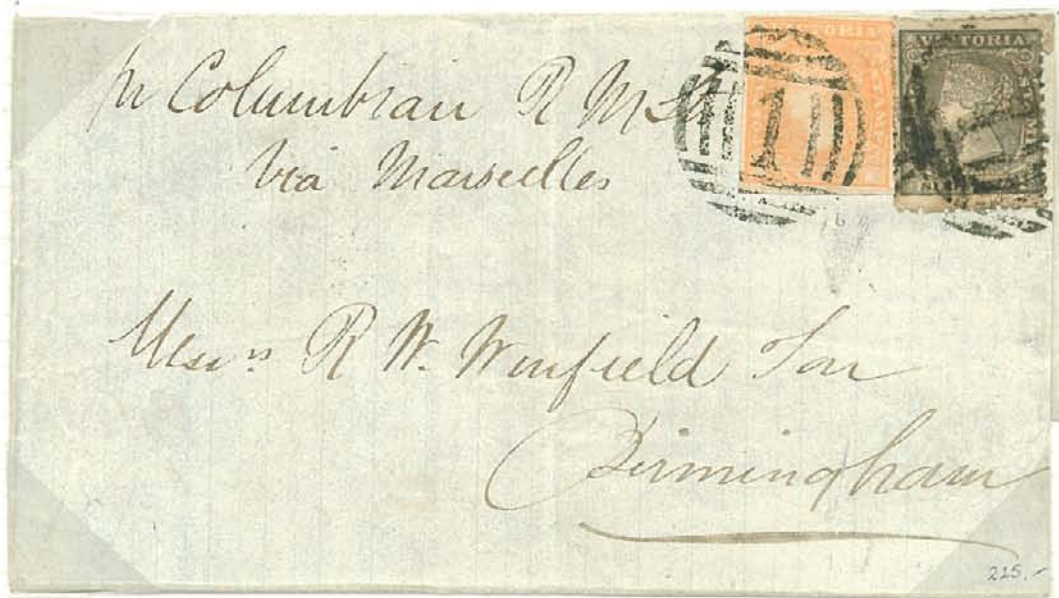 pr Columbian R M Str
Via Marseilles
VICTORIA
VICTORIA
1
Messrs R W. Winfield Son
Birmingham
225.-